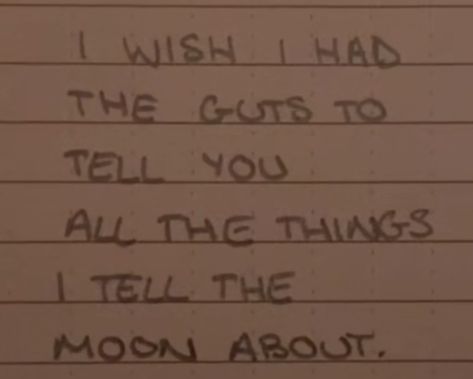 I WISH I HAD
THE GUTS TO
TELL YOU
ALL THE THINGS
I TELL THE
MOON ABOUT.